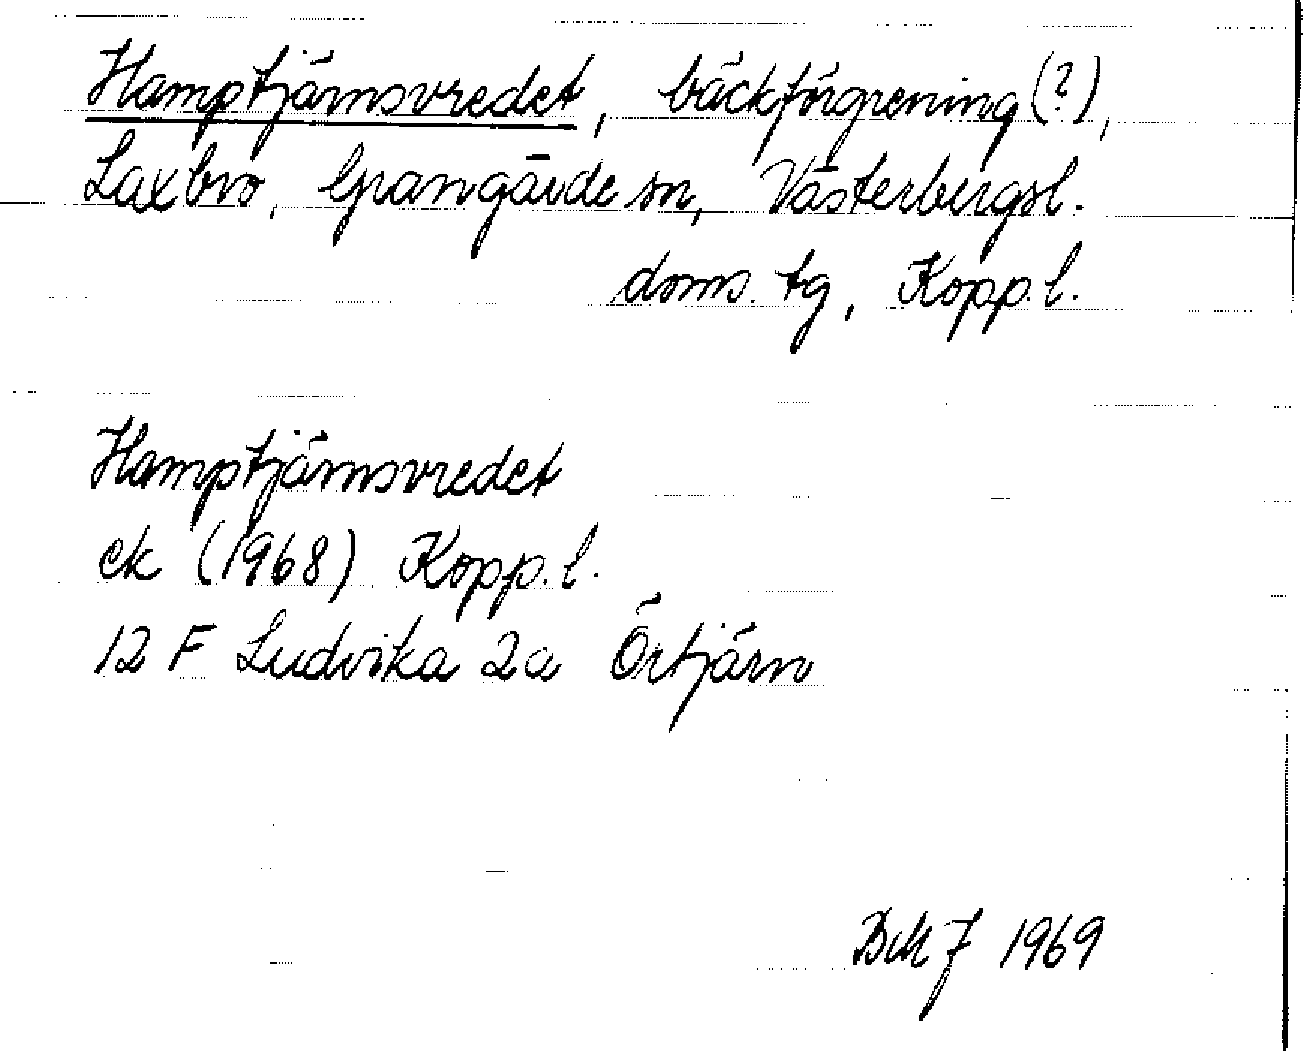 Hamptjärnsvredet, bäckförgrening (?),
Laxbro, Grangärde sn, Västerbergsl.
doms. tg, Kopp. l.
Hamptjärnsvredet
ek (1968) Kopp. l.
12 F Ludvika 2a Örtjärn
1969